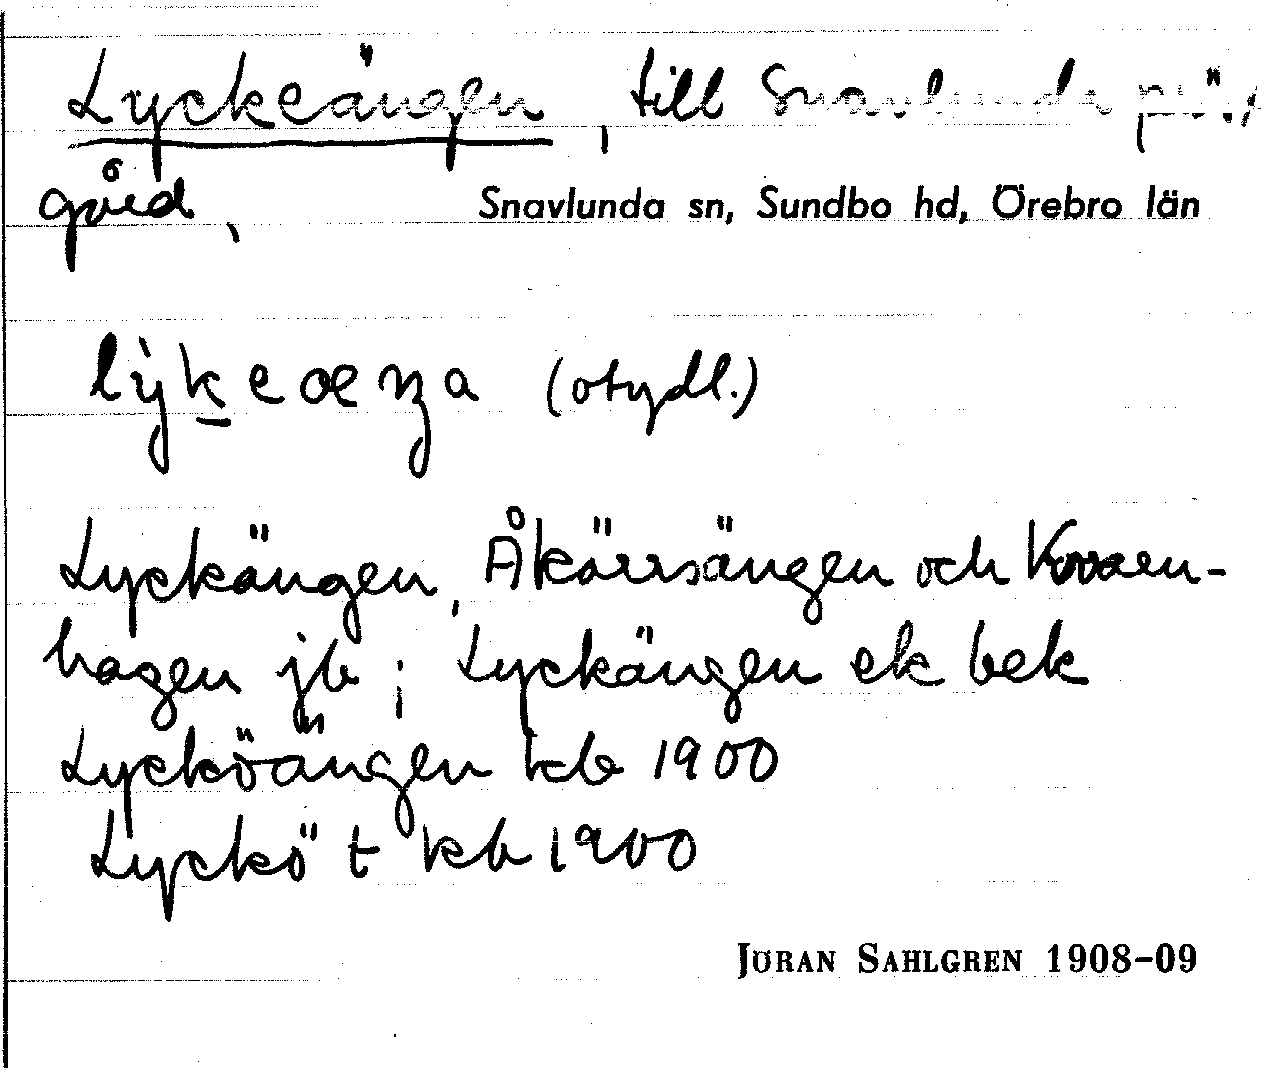 Lyckeängen, till Snavlunda
gård,
Snavlunda sn, Sundbo hd, Örebro län
(otydl.)
Lyckängen, Åkärrsängen och Kvarn-
hagen jb; Lyckängen ek bek
Lycköängen kb 1900
Lyckö t kb 1900
JÖRAN SAHLGREN 1908-09